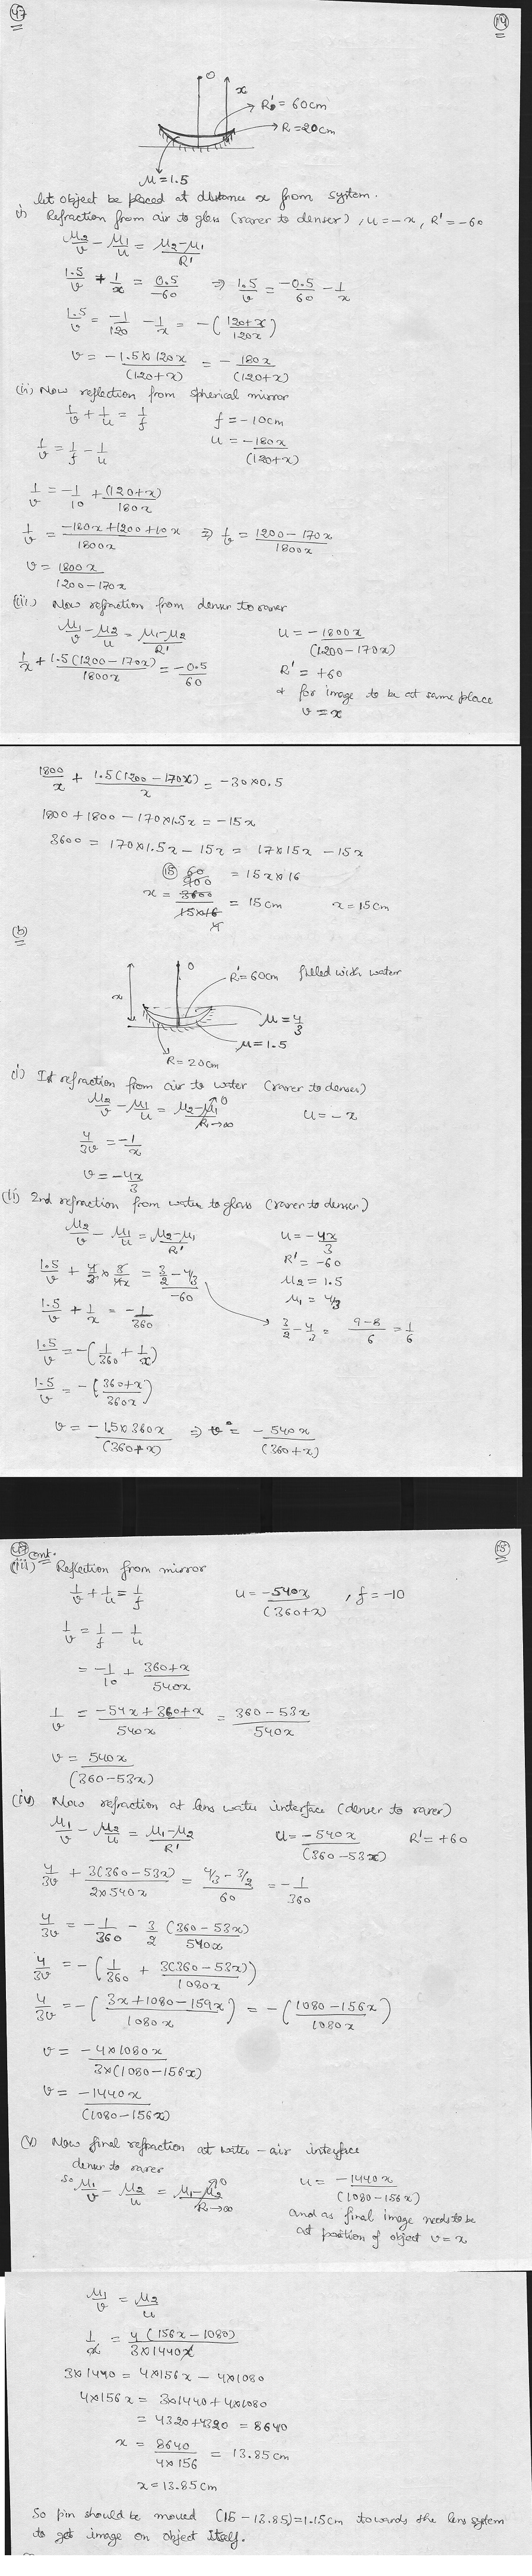 47
14
O
x
R' = 60cm
R = 20cm
μ = 1.5
let object be placed at distance x from system.
i) Refraction from air to glass (rarer to denser), u = -x, R' = -60
μ2/v - μ1/u = (μ2-μ1)/R'
1.5/v + 1/x = 0.5/-60 ⇒ 1.5/v = -0.5/60 - 1/x
1.5/v = -1/120 - 1/x = -((120+x)/120x)
v = (-1.5×120x)/(120+x) = -180x/(120+x)
(ii) Now reflection from spherical mirror
1/v + 1/u = 1/f f = -10cm
1/v = 1/f - 1/u u = -180x/(120+x)
1/v = -1/10 + (120+x)/180x
1/v = (-180x+1200+10x)/1800x ⇒ 1/v = (1200-170x)/1800x
v = 1800x/(1200-170x)
(iii) Now refraction from denser to rarer
μ1/v - μ2/u = (μ1-μ2)/R' u = -1800x/(1200-170x)
1/x + 1.5(1200-170x)/1800x = -0.5/60 R' = +60
& for image to be at same place
v = x
1800/x + 1.5(1200-170x)/x = -30×0.5
1800+1800-170×1.5x = -15x
3600 = 170×1.5x - 15x = 17×15x - 15x
= 15x×16
x = 3600/(15×16) = 15cm x = 15cm
(b)
O
x
R' = 60cm filled with water
μ = 4/3
μ = 1.5
R = 20cm
i) Ist refraction from air to water (rarer to denser)
μ2/v - μ1/u = (μ2-μ1)/R→∞ 0 u = -x
4/3v = -1/x
v = -4x/3
(ii) 2nd refraction from water to glass (rarer to denser)
μ2/v - μ1/u = (μ2-μ1)/R' u = -4x/3
R' = -60
1.5/v + 4/3 × 3/4x = (3/2 - 4/3)/-60 μ2 = 1.5
μ1 = 4/3
1.5/v + 1/x = -1/360 3/2 - 4/3 = (9-8)/6 = 1/6
1.5/v = -(1/360 + 1/x)
1.5/v = -((360+x)/360x)
v = (-1.5×360x)/(360+x) ⇒ v = -540x/(360+x)
47 cont.
15
(iii) Reflection from mirror
1/v + 1/u = 1/f u = -540x/(360+x), f = -10
1/v = 1/f - 1/u
= -1/10 + (360+x)/540x
1/v = (-54x+360+x)/540x = (360-53x)/540x
v = 540x/(360-53x)
(iv) Now refraction at lens water interface (denser to rarer)
μ1/v - μ2/u = (μ1-μ2)/R' u = -540x/(360-53x) R' = +60
4/3v + 3(360-53x)/(2×540x) = (4/3 - 3/2)/60 = -1/360
4/3v = -1/360 - 3/2 (360-53x)/540x
4/3v = -(1/360 + 3(360-53x)/1080x)
4/3v = -((3x+1080-159x)/1080x) = -((1080-156x)/1080x)
v = (-4×1080x)/(3×(1080-156x))
v = -1440x/(1080-156x)
(v) Now final refraction at water-air interface
denser to rarer
So μ1/v - μ2/u = (μ1-μ2)/R→∞ 0 u = -1440x/(1080-156x)
and as final image needs to be
at position of object v = x
μ1/v = μ2/u
1/x = 4(156x-1080)/(3×1440x)
3×1440 = 4×156x - 4×1080
4×156x = 3×1440+4×1080
= 4320+4320 = 8640
x = 8640/(4×156) = 13.85cm
x = 13.85cm
So pin should be moved (15-13.85)=1.15cm towards the lens system
to get image on object itself.